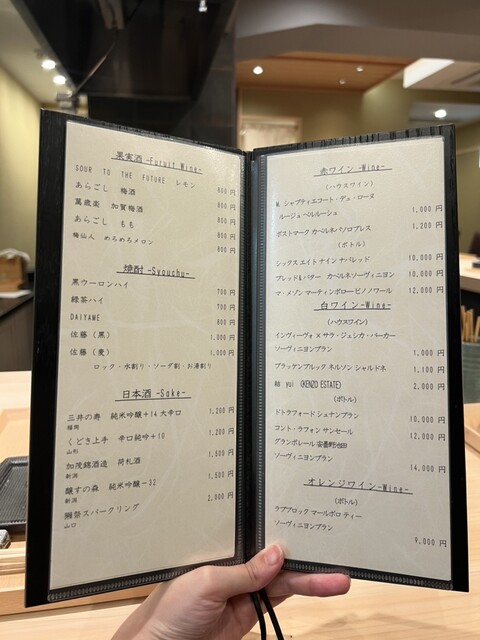 果実酒 -Furuit Wine-
SOUR TO THE FUTURE レモン 800 円
あらごし 梅酒 800 円
萬歳楽 加賀梅酒 800 円
あらごし もも 800 円
梅仙人 めろめろメロン 800 円
焼酎 -Syouchu-
黒ウーロンハイ 700 円
緑茶ハイ 700 円
DAIYAME 900 円
佐藤 (黒) 1,000 円
佐藤 (麦) 1,000 円
ロック・水割り・ソーダ割・お湯割り
日本酒 -Sake-
三井の寿 純米吟醸+14 大辛口 1,200 円
福岡
くどき上手 辛口純吟+10 1,200 円
山形
加茂錦酒造 荷札酒 1,500 円
新潟
醸すの森 純米吟醸-32 1,500 円
新潟
獺祭スパークリング 2,000 円
山口
赤ワイン -Wine-
(ハウスワイン)
M.シャプティエコート・デュ・ローヌ
ルージュ ベルルーシュ 1,000 円
ポストマーク カベルネ・パソロブレス 1,200 円
(ボトル)
シックス エイト ナイン ナパレッド 10,000 円
ブレッド&バター カベルネソーヴィニヨン 10,000 円
マ・メゾン マーティンボロー ピノノワール 12,000 円
白ワイン -Wine-
(ハウスワイン)
インヴィーヴォ × サラ・ジェシカ・パーカー
ソーヴィニヨンブラン 1,000 円
ブラッケンブルック ネルソン シャルドネ 1,100 円
結 yui (KENZO ESTATE) 2,000 円
(ボトル)
ドトラフォード シュナンブラン 10,000 円
コント・ラフォン サンセール 12,000 円
グランポレール 安曇野池田
ソーヴィニヨンブラン 14,000 円
オレンジワイン -Wine-
(ボトル)
ラプブロック マールボロ ティー
ソーヴィニヨンブラン 9,000 円